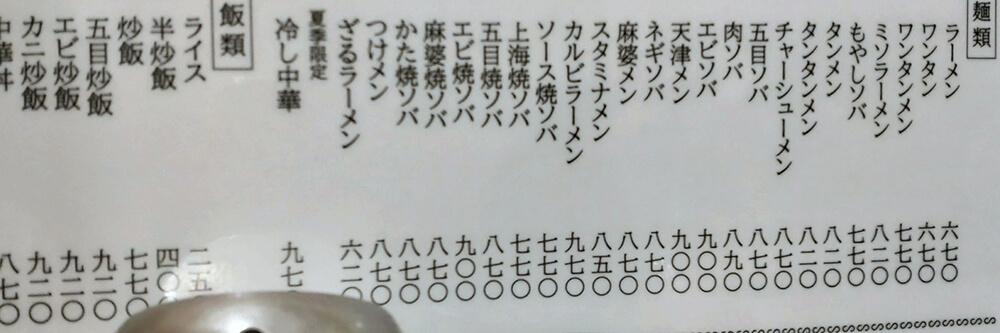 麺類
ラーメン 六七〇
ワンタン 六七〇
ワンタンメン 七七〇
ミソラーメン 八二〇
もやしソバ 七七〇
タンメン 八二〇
タンタンメン 八二〇
チャーシューメン 八七〇
五目ソバ 八七〇
肉ソバ 八九〇
エビソバ 九〇〇
天津メン 九〇〇
ネギソバ 八七〇
麻婆メン 八七〇
スタミナメン 八五〇
カルビラーメン 九七〇
ソース焼ソバ 七七〇
上海焼ソバ 七七〇
五目焼ソバ 八七〇
エビ焼ソバ 九〇〇
麻婆焼ソバ 八七〇
かた焼ソバ 八七〇
つけメン 八七〇
ざるラーメン 六二〇
夏季限定
冷し中華 九七
飯類
ライス 二五
半炒飯 四〇
炒飯 七七〇
五目炒飯 九二〇
エビ炒飯 九二〇
カニ炒飯 九二〇
中華丼 八七〇